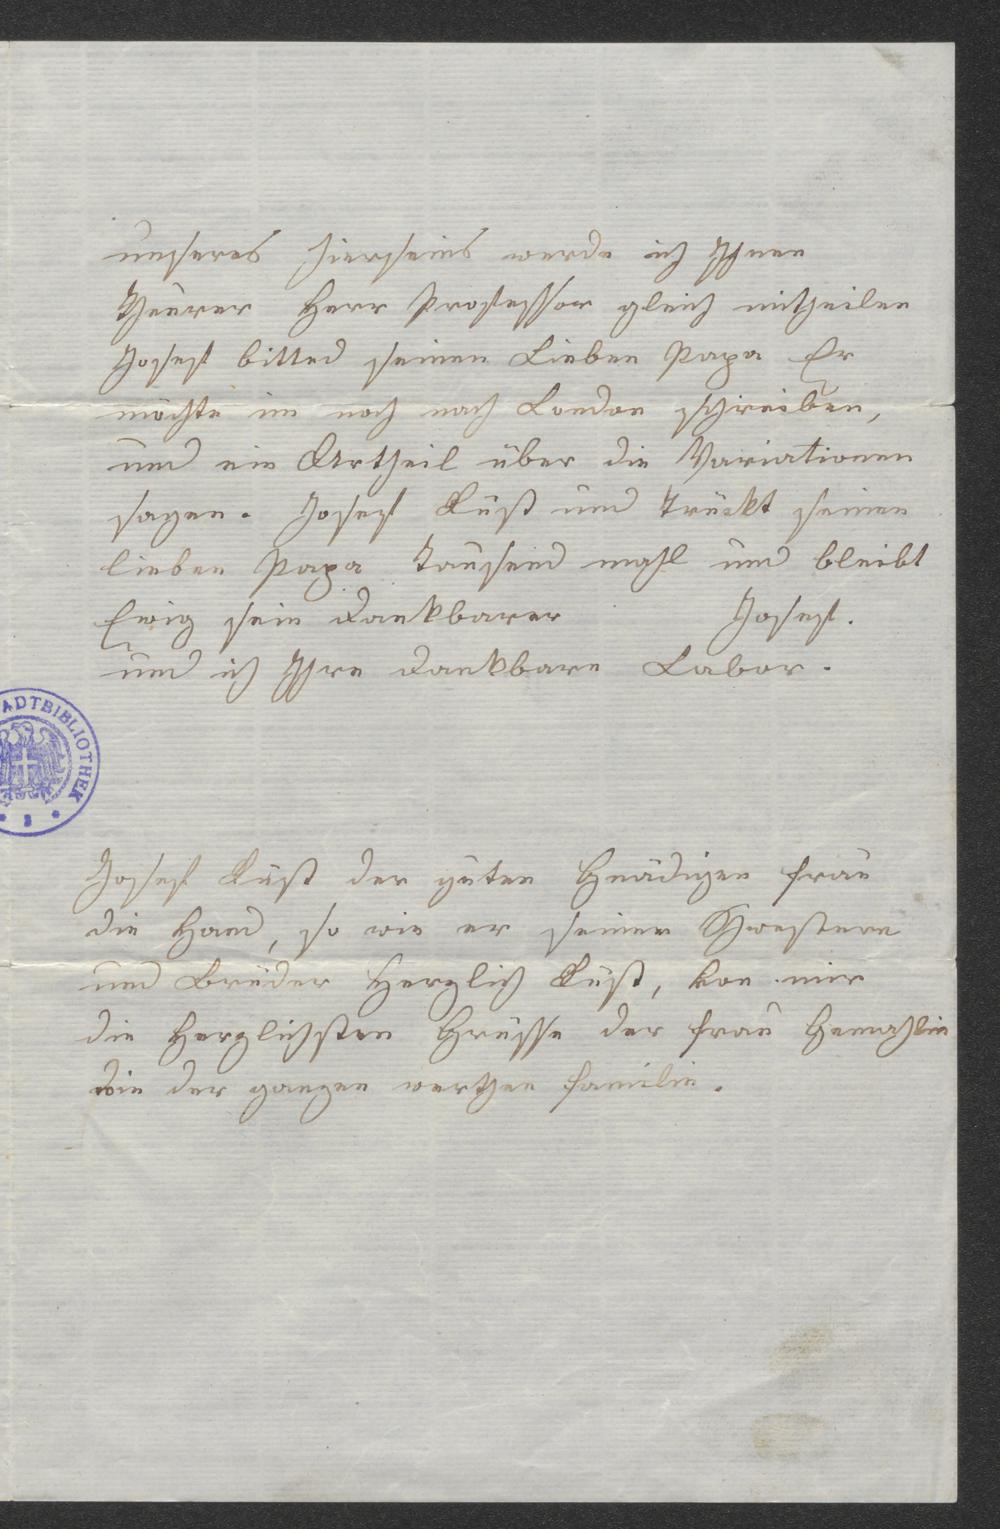 unseres Hierseins werde ich Ihnen
Theurer Herr Professor gleich mitheilen
Josef bitted seinen Lieben Papa Er
möchte im noch nach London schreiben,
und ein Urtheil über die Variationen
sagen. Josef Küst und Trückt seinen
lieben Papa Tausend mahl und bleibt
Ewig sein Dankbarer Josef.
und ich Ihre Dankbare Labor.
ADTBIBLIOTHEK
Josef Küst der guten Gnädigen Frau
die Hand, so wie er seinen Schwestern
und Brüder Herzlich Küst, von mir
die Herzlichsten Grüsse der Frau Gemahlin
wie der ganzen werthen Familie.